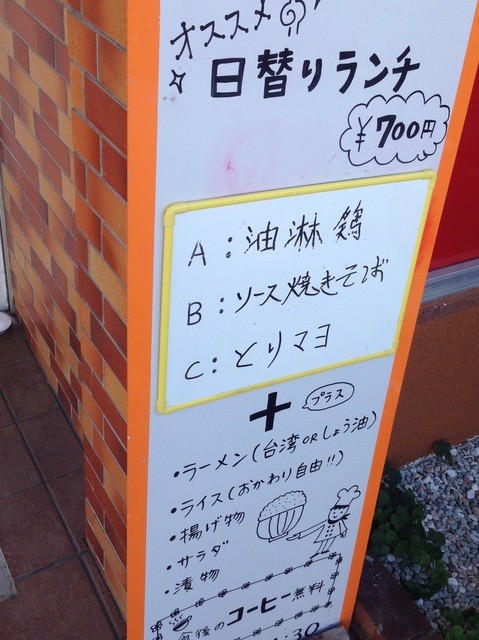 オススメ
日替りランチ
¥700円
A:油淋鶏
B:ソース焼きそば
C:とりマヨ
+ プラス
・ラーメン(台湾ORしょう油)
・ライス(おかわり自由!!)
・揚げ物
・サラダ
・漬物
後のコーヒー無料
:30